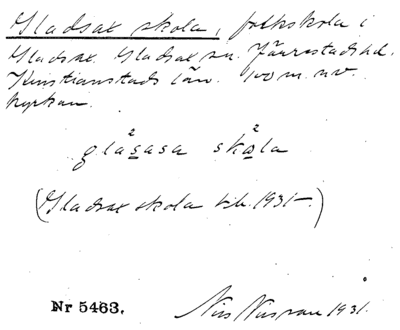 Gladsax skola, folkskola i
Gladsax. Gladsax sn. Järrestads hd.
Kristianstads län. 100 m. nv.
kyrkan.
glasasa skola
(Gladsax skola tik. 1931-.)
Nr 5463.
Nils Nilsson 1931.